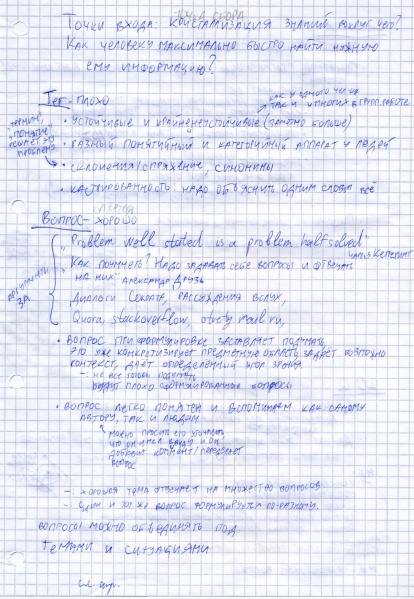 Точки входа: кристаллизация знаний вокруг чего?
Как человеку максимально быстро найти нужную
ему информацию?
Тег - плохо
как у одного чел-ка
так и многих в групп. работе
• устойчивые и крайне неустойчивые (заметно больше)
термин,
понятие
проблема
• разный понятийный и категорийный аппарат у людей
• склонения/спряжение, синонимы
• кастрированность: надо объяснить одним словом всё
Вопрос - хорошо
аргументы
за
"Problem well stated is a problem half solved"
Чарльз Кеттеринг
"Как поумнеть? Надо задавать себе вопросы и отвечать
на них" Александр Друзь
Диалоги Сократа, рассуждения вслух,
Quora, stackoverflow, otvety mail.ru,
• вопрос при формулировке заставляет подумать,
это уже конкретизирует предметную область, задаёт возможно
контекст, даёт определённый угол зрения.
- не все готовы подумать,
будут плохо сформулированные вопросы
• вопрос легко понятен и вспоминаем как самому
автору, так и людям
можно просить его уточнить
что он имел ввиду и он
добавит коммент/переделает
вопрос
- хорошая тема отвечает на множество вопросов
- один и тот же вопрос формулируется по-разному.
вопросы можно объединять под
темами и ситуациями